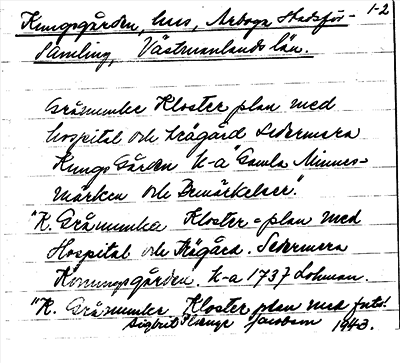 1-2
Kungsgården, hus, Arboga Stadsför-
samling, Västmanlands län.
Gråmunke Kloster plan med
hospital och trägård Sedermera
Kungs Gården k-a "Gamla Minnes-
märken och Bemärkelser".
"K. Gråmunka Kloster-plan med
Hospital och Trägård. Sedermera
Konungsgården. k-a 1737 Lohman.
"K. Gråmunke Kloster plan med forts!
Sigbrit Plænge Jacobson 1943.